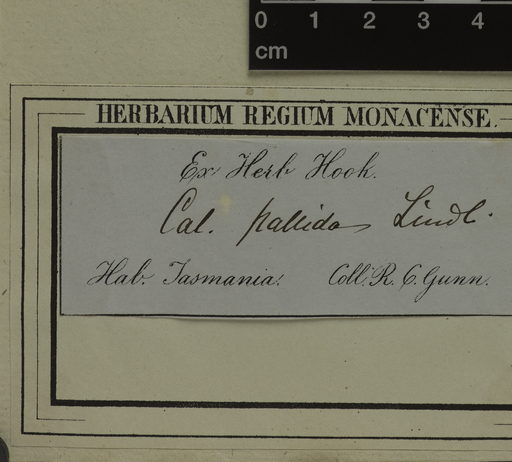 0 1 2 3 4
cm
HERBARIUM REGIUM MONACENSE.
Ex Herb Hook.
Cal. pallida Lindl.
Hab. Tasmania. Coll. R. C. Gunn.